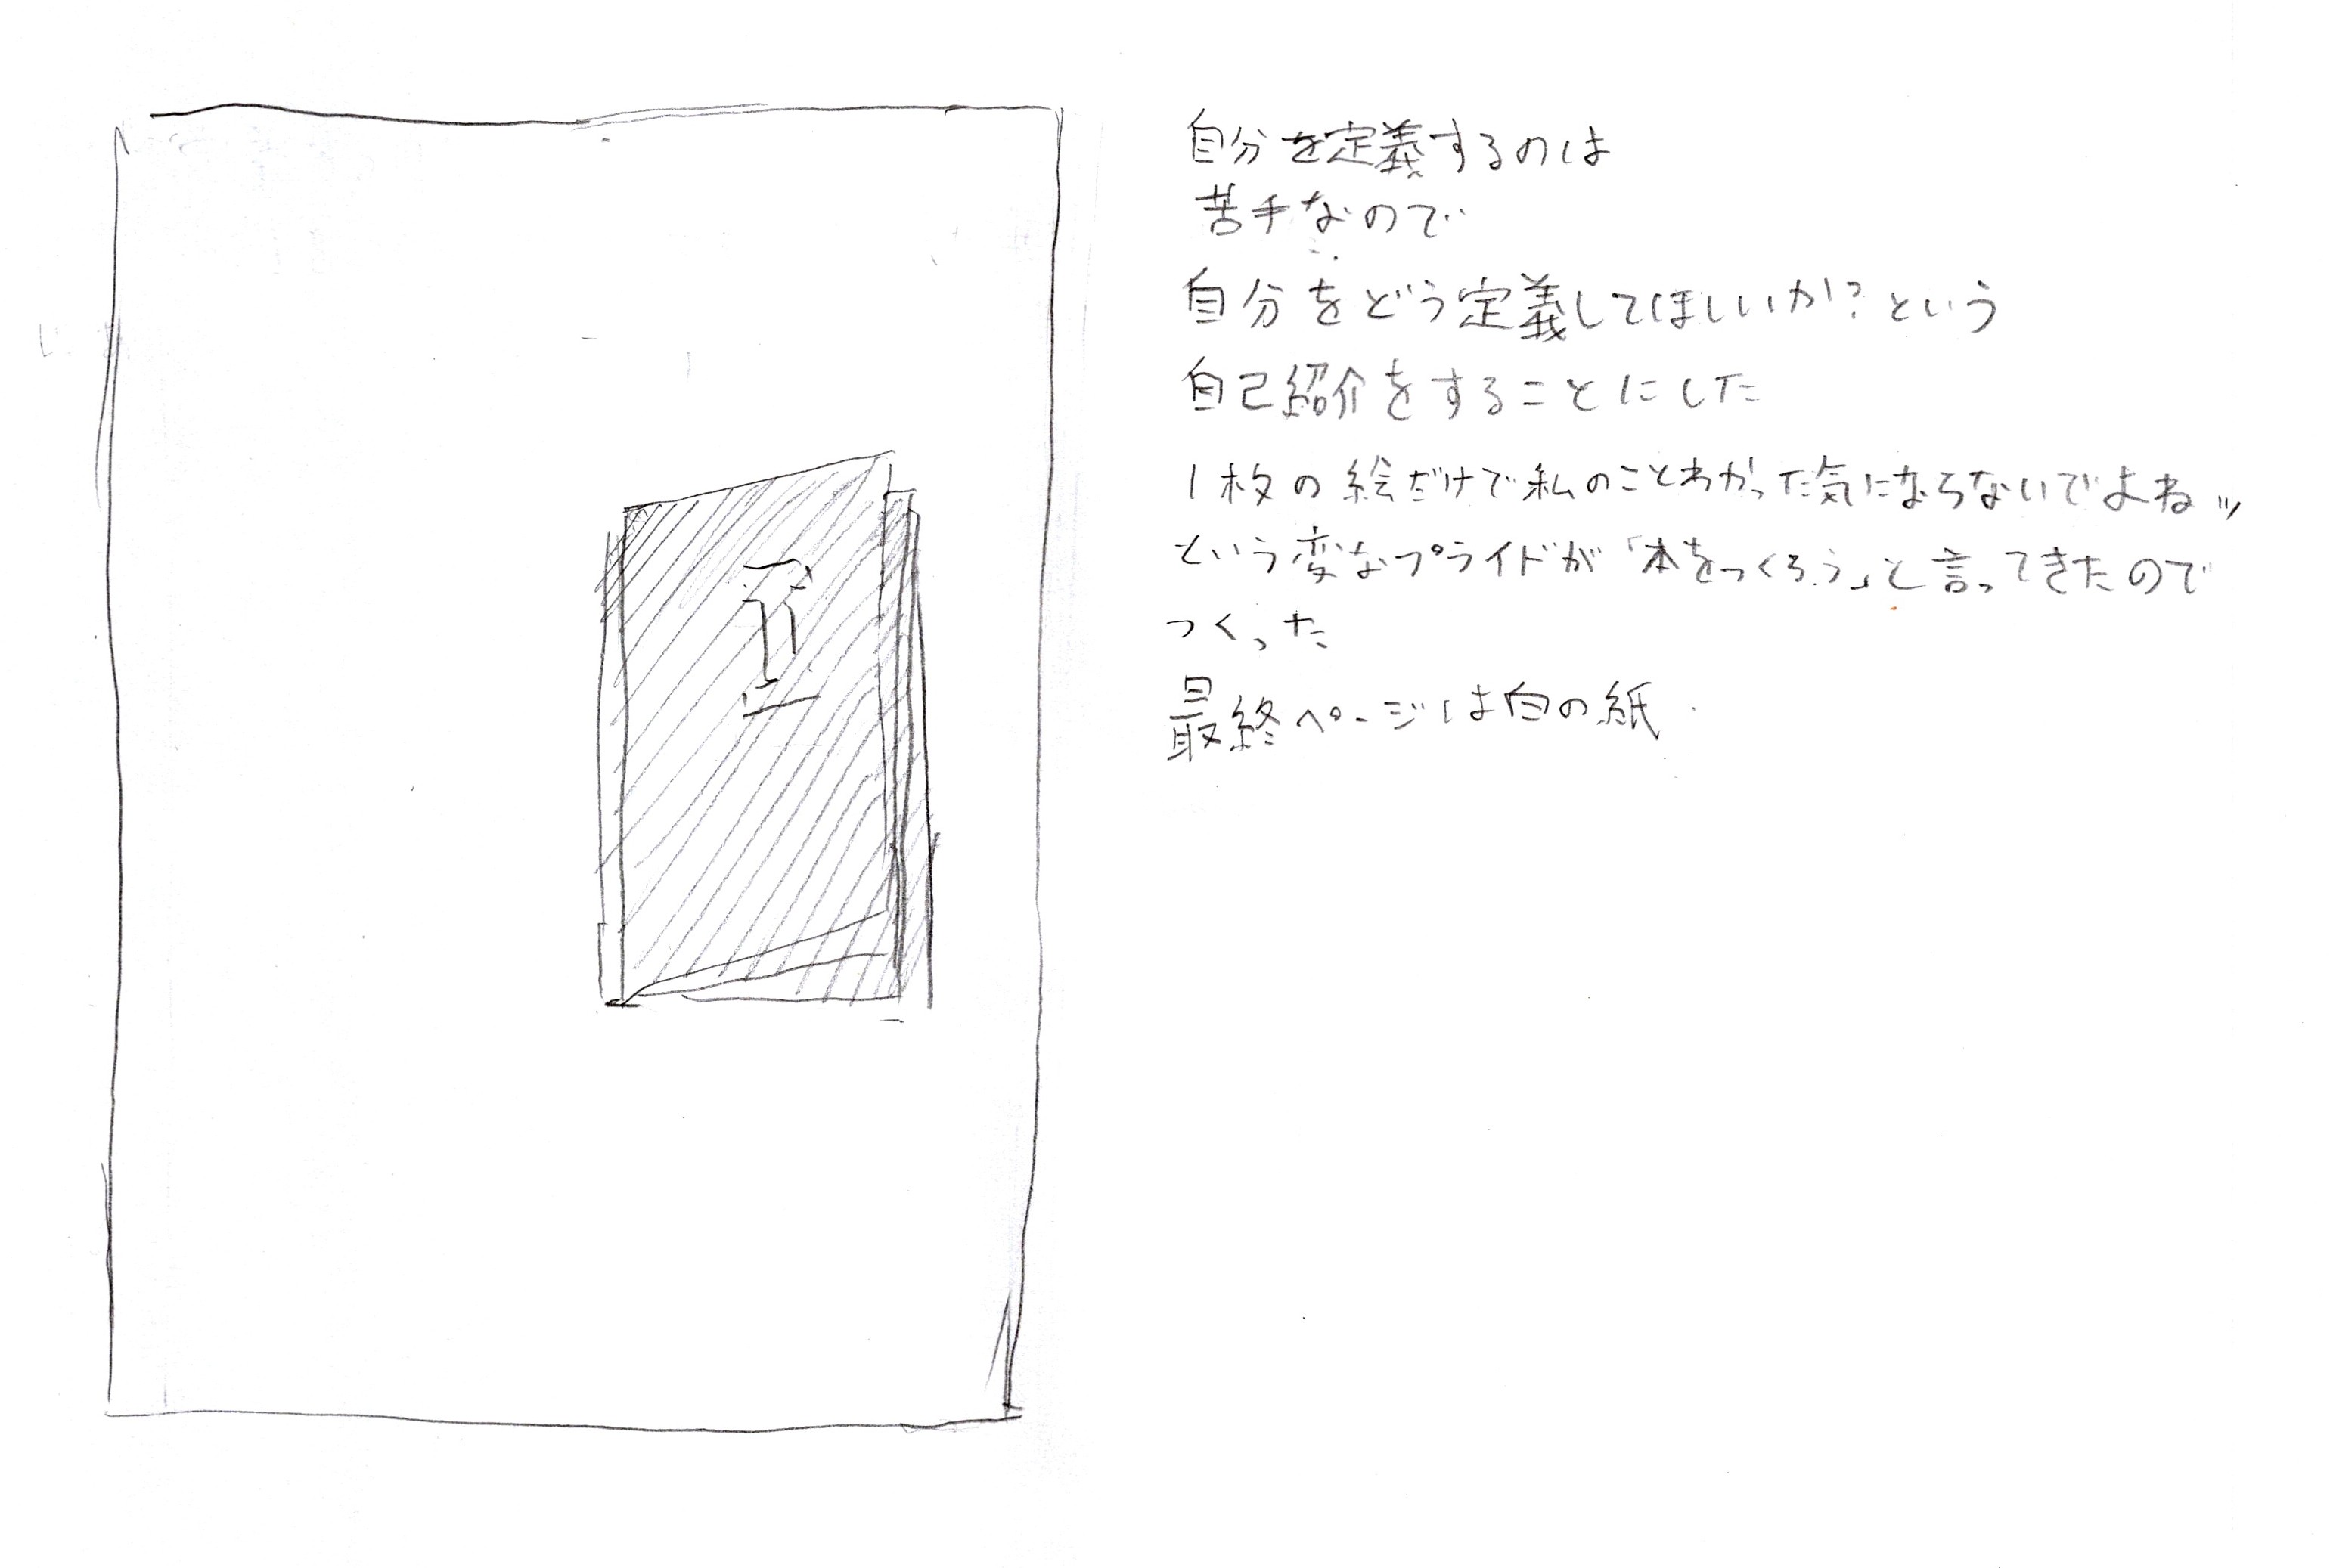 自分を定義するのは
苦手なので
自分をどう定義してほしいか？という
自己紹介をすることにした
1枚の絵だけで私のことわかった気にならないでよねッ
という変なプライドが「本をつくろう」と言ってきたので
つくった
最終ページは白の紙